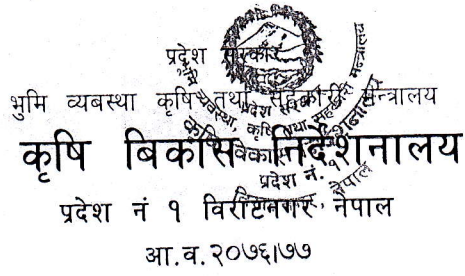 प्रदेश सरकार
भुमि व्यबस्था कृषि तथा सहकारी मन्त्रालय
कृषि विकास निर्देशनालय
प्रदेश नं १ विराटनगर, नेपाल
आ.व.२०७६।७७